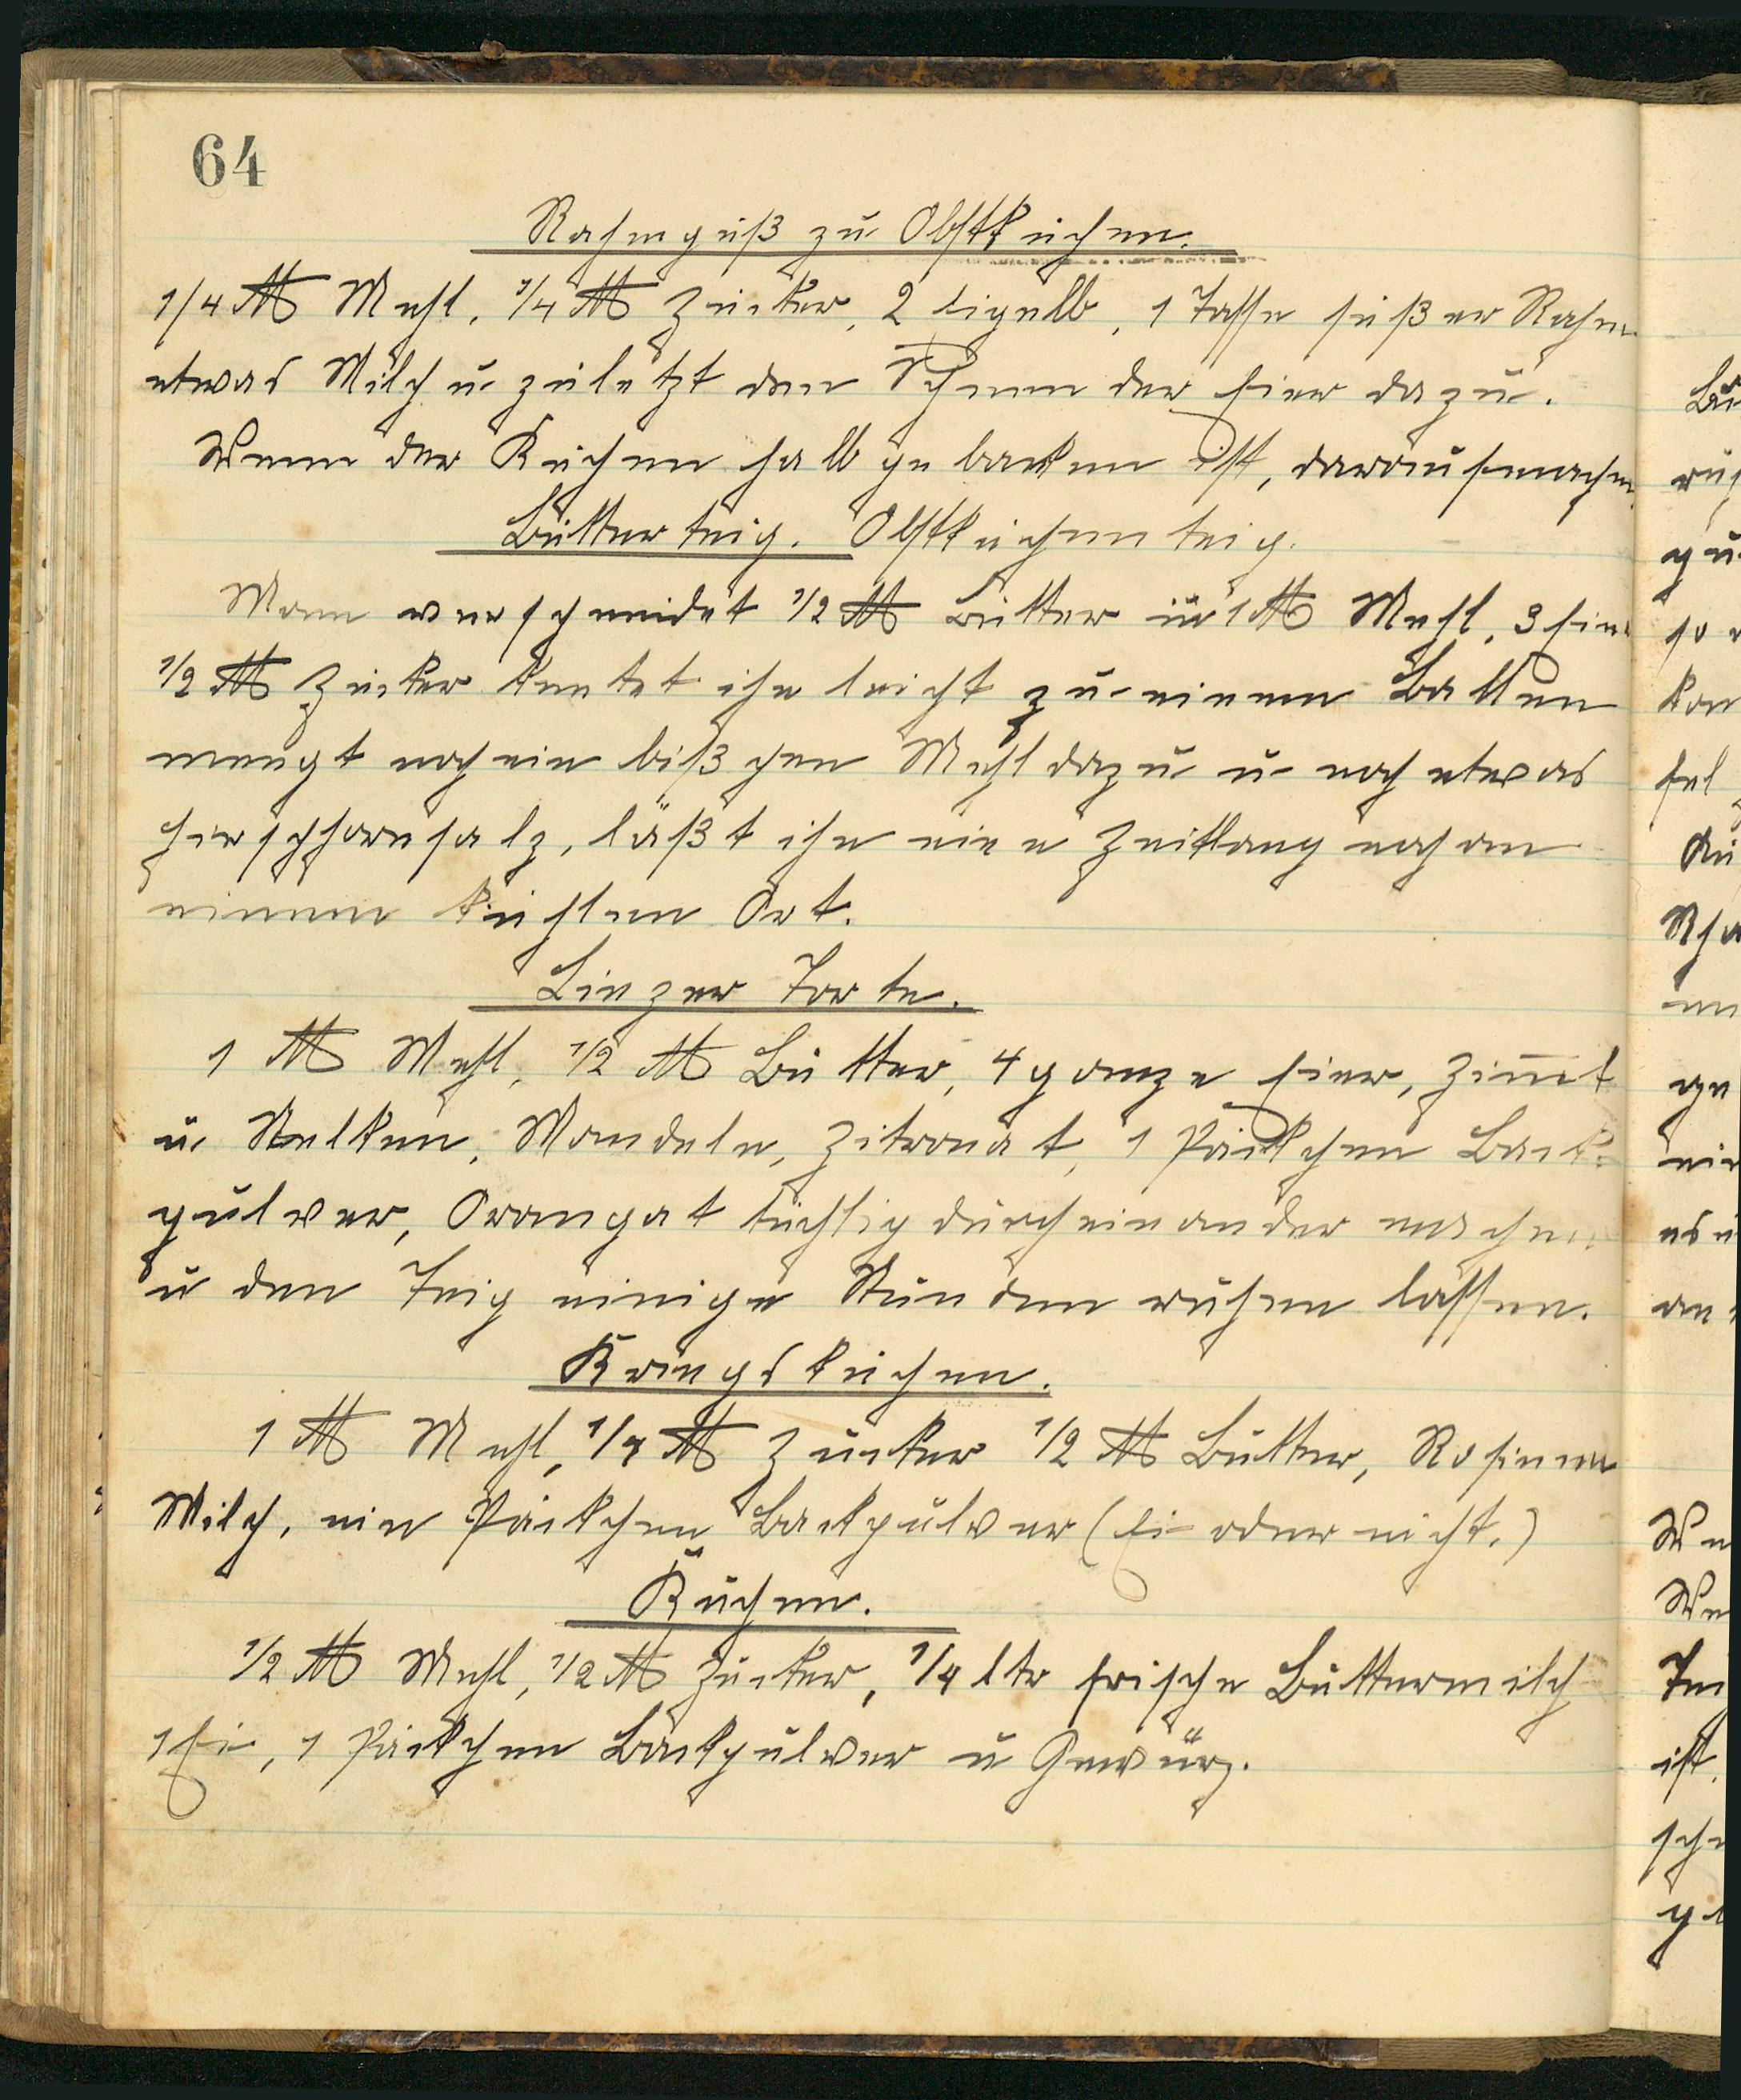 64
Rahmguß zu Obstkuchen.
1/4 ℔ Mehl, 1/4 ℔ Zucker, 2 Eigelb, 1 Tasse süßer Rahm
etwas Milch u. zuletzt den Schnee der Eier dazu.
Wenn der Kuchen halb gebacken ist, daraufmachen
Butterteig. Obstkuchenteig.
Man verschneidet 1/2 ℔ Butter in 1 ℔ Mehl, 3 Eier
1/2 ℔ Zucker knetet ihn leicht zu einem Ballen
mengt noch ein bißchen Mehl dazu u noch etwas
Hirschhornsalz, läßt ihn eine Zeitlang noch an
einem kühlen Ort.
Linzer Torte.
1 ℔ Mehl, 1/2 ℔ Butter, 4 ganze Eier, Zimt
u. Nelken, Mandeln, Zitronat, 1 Päckchen Back-
pulver, Orangat tüchtig durcheinander machen
u den Teig einige Stunden ruhen lassen.
Kringskuchen.
1 ℔ Mehl, 1/4 ℔ Zucker 1/2 ℔ Butter, Rosinen
Milch, ein Päckchen Backpulver (Ei oder nicht.)
Kuchen.
1/2 ℔ Mehl, 1/2 ℔ Zucker, 1/4 ltr frische Buttermilch
1 Ei, 1 Päckchen Backpulver u Gewürz.